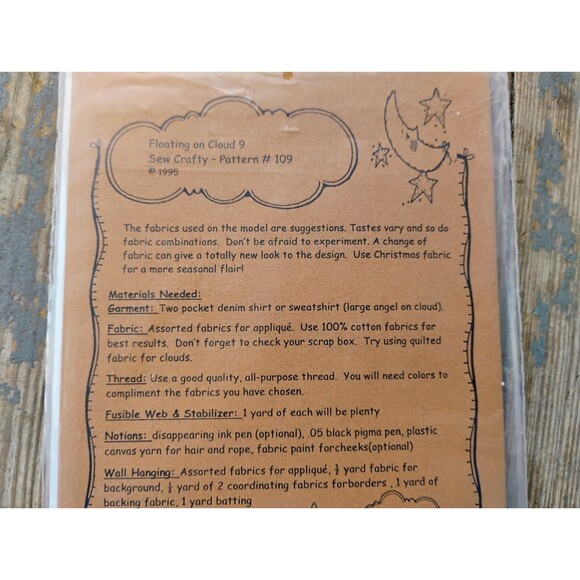 Floating on Cloud 9
Sew Crafty - Pattern # 109
© 1995
The fabrics used on the model are suggestions. Tastes vary and so do
fabric combinations. Don't be afraid to experiment. A change of
fabric can give a totally new look to the design. Use Christmas fabric
for a more seasonal flair!
Materials Needed:
Garment: Two pocket denim shirt or sweatshirt (large angel on cloud).
Fabric: Assorted fabrics for appliqué. Use 100% cotton fabrics for
best results. Don't forget to check your scrap box. Try using quilted
fabric for clouds.
Thread: Use a good quality, all-purpose thread. You will need colors to
compliment the fabrics you have chosen.
Fusible Web & Stabilizer: 1 yard of each will be plenty
Notions: disappearing ink pen (optional), .05 black pigma pen, plastic
canvas yarn for hair and rope, fabric paint forcheeks(optional)
Wall Hanging: Assorted fabrics for appliqué, yard fabric for
background, yard of 2 coordinating fabrics forborders , 1 yard of
backing fabric, 1 yard batting